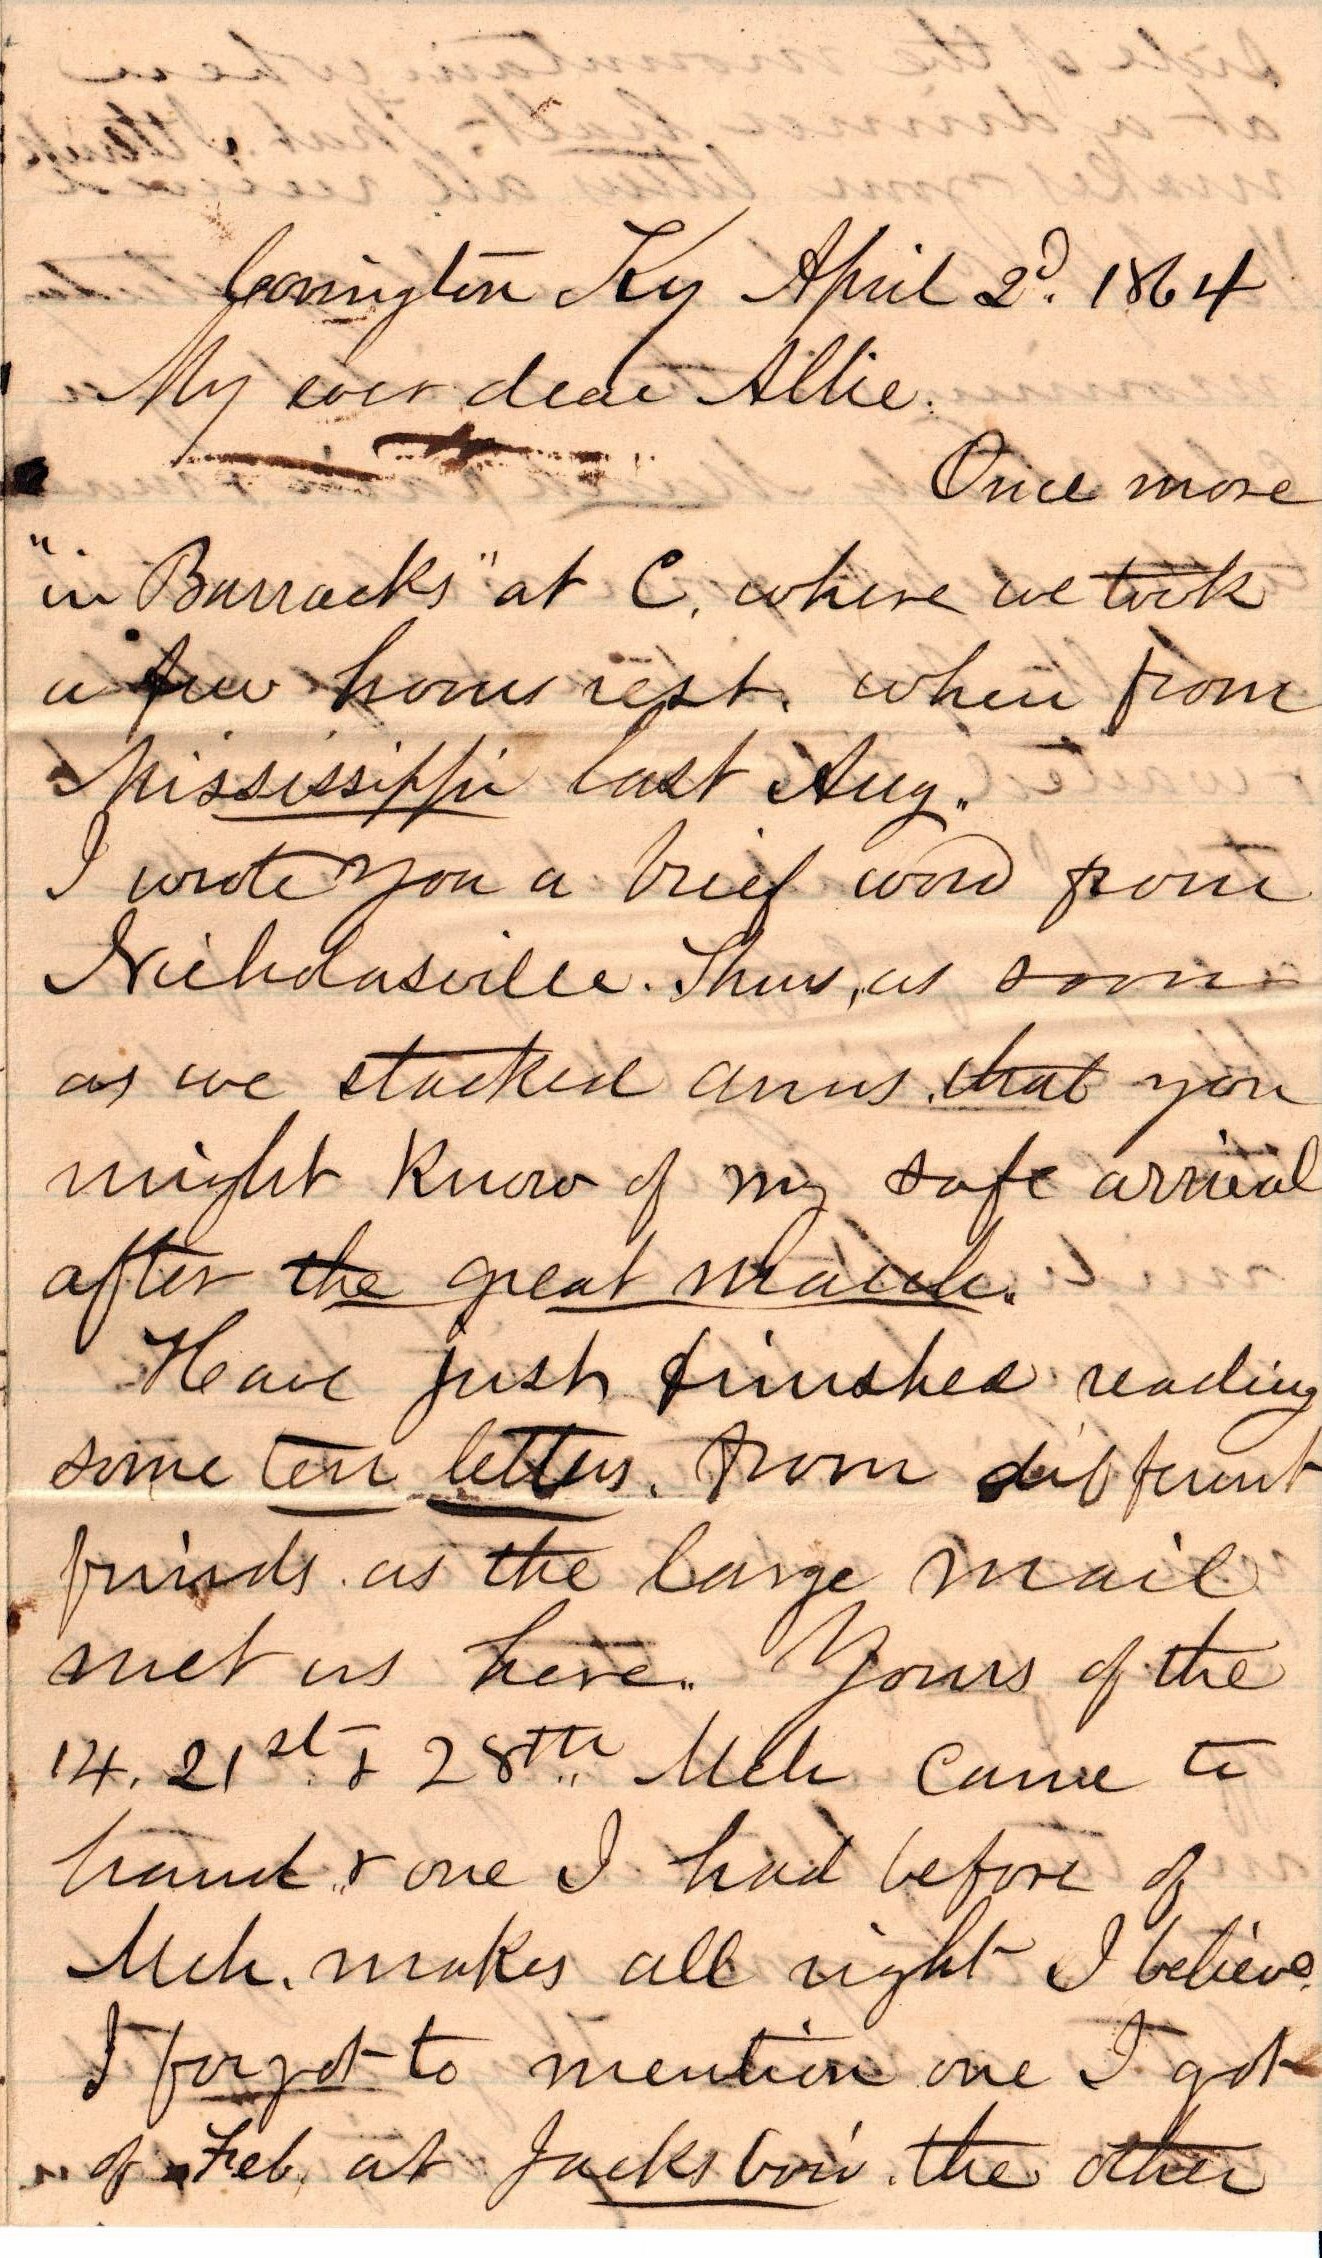 Covington Ky April 2d. 1864
My ever dear Allie.
Once more
"in Barracks" at C. where we took
a few hours rest. when from
Mississippi last Aug.
I wrote you a brief word from
Nicholasville. Thus, as soon
as we stacked arms. that you
might know of my safe arrival
after the great march.
Have just finished reading
some ten letters. from different
friends. as the large mail
met us here. Yours of the
14. 21st & 28th Mch came to
hand. & one I had before of
Mch. makes all right I believe.
I forgot to mention one I got
of Feb. at Jacksboro'. the other